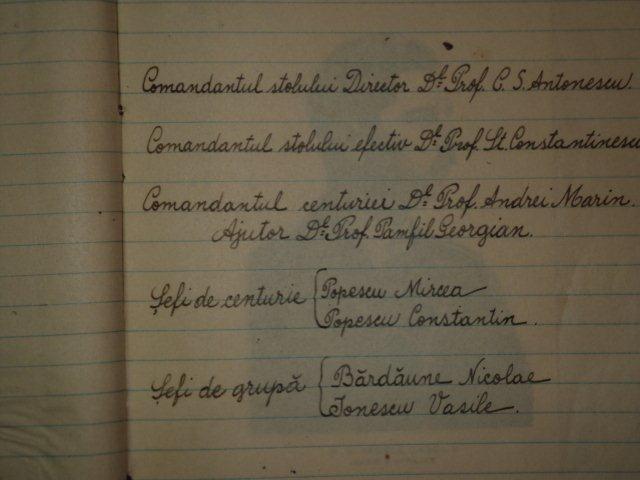 Comandantul stolului Director Dl. Prof. C. S. Antonescu.
Comandantul stolului efectiv Dl. Prof. St. Constantinescu
Comandantul centuriei Dl. Prof. Andrei Marin.
Ajutor Dl. Prof. Pamfil Georgian.
Șefi de centurie { Popescu Mircea
Popescu Constantin.
Șefi de grupă { Bărdăune Nicolae
Ionescu Vasile.